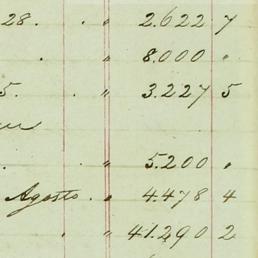 28. . " 2.622 7
. " 8.000 "
5. . " 3.227 5
. " 5.200 "
Agosto . " 4.478 4
" " 41.290 2